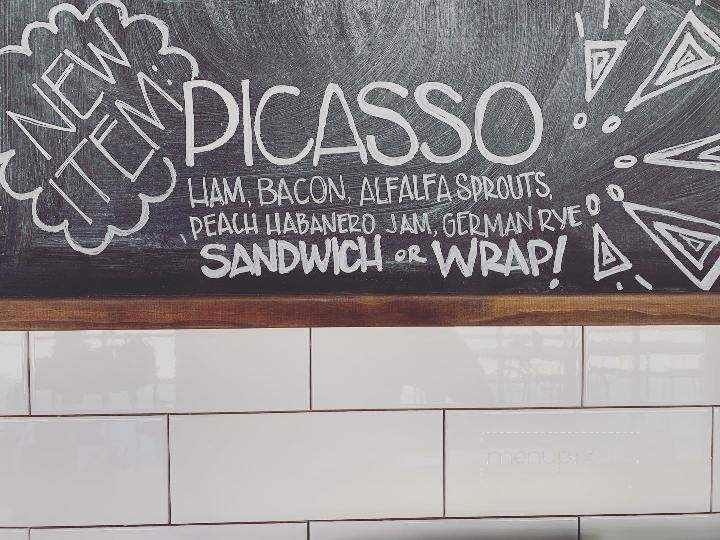 NEW
ITEM:
PICASSO
HAM, BACON, ALFALFA SPROUTS,
PEACH HABANERO JAM, GERMAN RYE
SANDWICH OR WRAP!
menupix